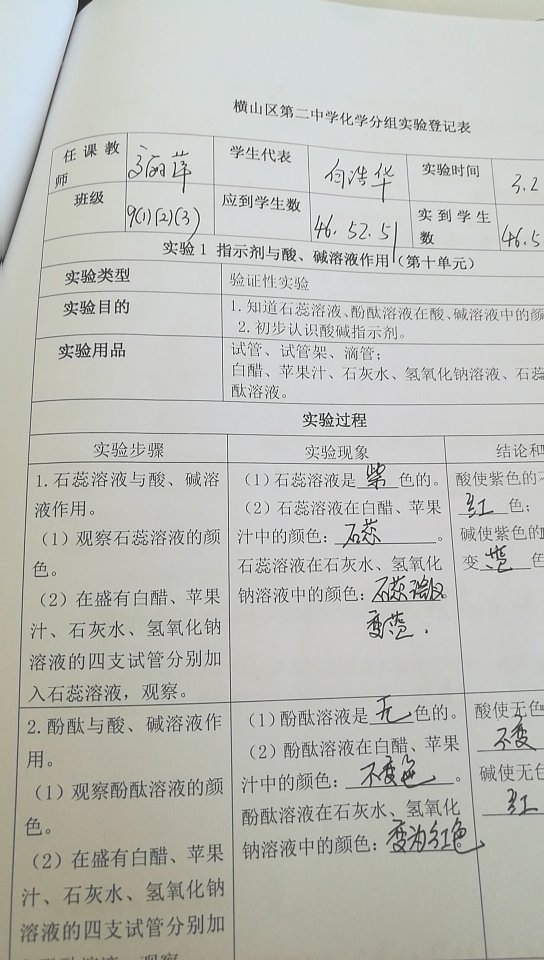 横山区第二中学化学分组实验登记表
任课教师 高丽萍 学生代表 白浩华 实验时间 3.2
班级 9(1)(2)(3) 应到学生数 46.52.51 实到学生数 46.5
实验1 指示剂与酸、碱溶液作用（第十单元）
实验类型 验证性实验
实验目的 1.知道石蕊溶液、酚酞溶液在酸、碱溶液中的颜
2.初步认识酸碱指示剂。
实验用品 试管、试管架、滴管；
白醋、苹果汁、石灰水、氢氧化钠溶液、石蕊
酞溶液。
实验过程
实验步骤 实验现象 结论和
1.石蕊溶液与酸、碱溶
液作用。
（1）观察石蕊溶液的颜
色。
（2）在盛有白醋、苹果
汁、石灰水、氢氧化钠
溶液的四支试管分别加
入石蕊溶液，观察。
（1）石蕊溶液是紫色的。
（2）石蕊溶液在白醋、苹果
汁中的颜色：石蕊。
石蕊溶液在石灰水、氢氧化
钠溶液中的颜色：石蕊溶液
变蓝.
酸使紫色的
红色；
碱使紫色的
变蓝色
2.酚酞与酸、碱溶液作
用。
（1）观察酚酞溶液的颜
色。
（2）在盛有白醋、苹果
汁、石灰水、氢氧化钠
溶液的四支试管分别加
（1）酚酞溶液是无色的。
（2）酚酞溶液在白醋、苹果
汁中的颜色：不变色。
酚酞溶液在石灰水、氢氧化
钠溶液中的颜色：变为红色
酸使无色
不变
碱使无色
红